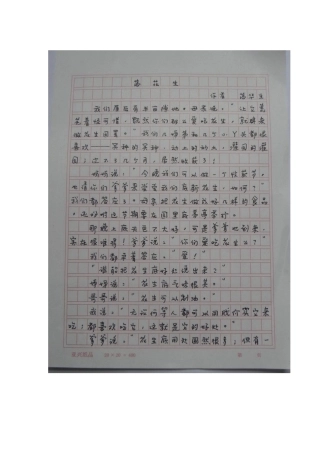 落花生
作者 落华生
我们屋后有半亩隙地。母亲说:"让它荒
芜着怪可惜,既然你们那么爱吃花生,就辟来
做花生园罢。"我们几姊弟和几个小丫头都很
喜欢——买种的买种,动土的动土,灌园的灌
园;过不了几个月,居然收获了!
妈妈说:"今晚我们可以做一个收获节,
也请你们爹爹来尝尝我们底新花生,如何?"
我们都答应了。母亲把花生做成好几样的食品,
还吩咐这节期要在园里底茅亭举行。
那晚上底天色不大好,可是爹爹也到来,
实在很难得!爹爹说:"你们爱吃花生么?"
我们都争着答应:"爱!"
"谁能把花生底好处说出来?"
姊姊说:"花生底气味很美。"
哥哥说:"花生可以制油。"
我说:"无论何等人都可以用贱价买它来
吃;都喜欢吃它。这就是它的好处。"
爹爹说:"花生底用处固然很多;但有一